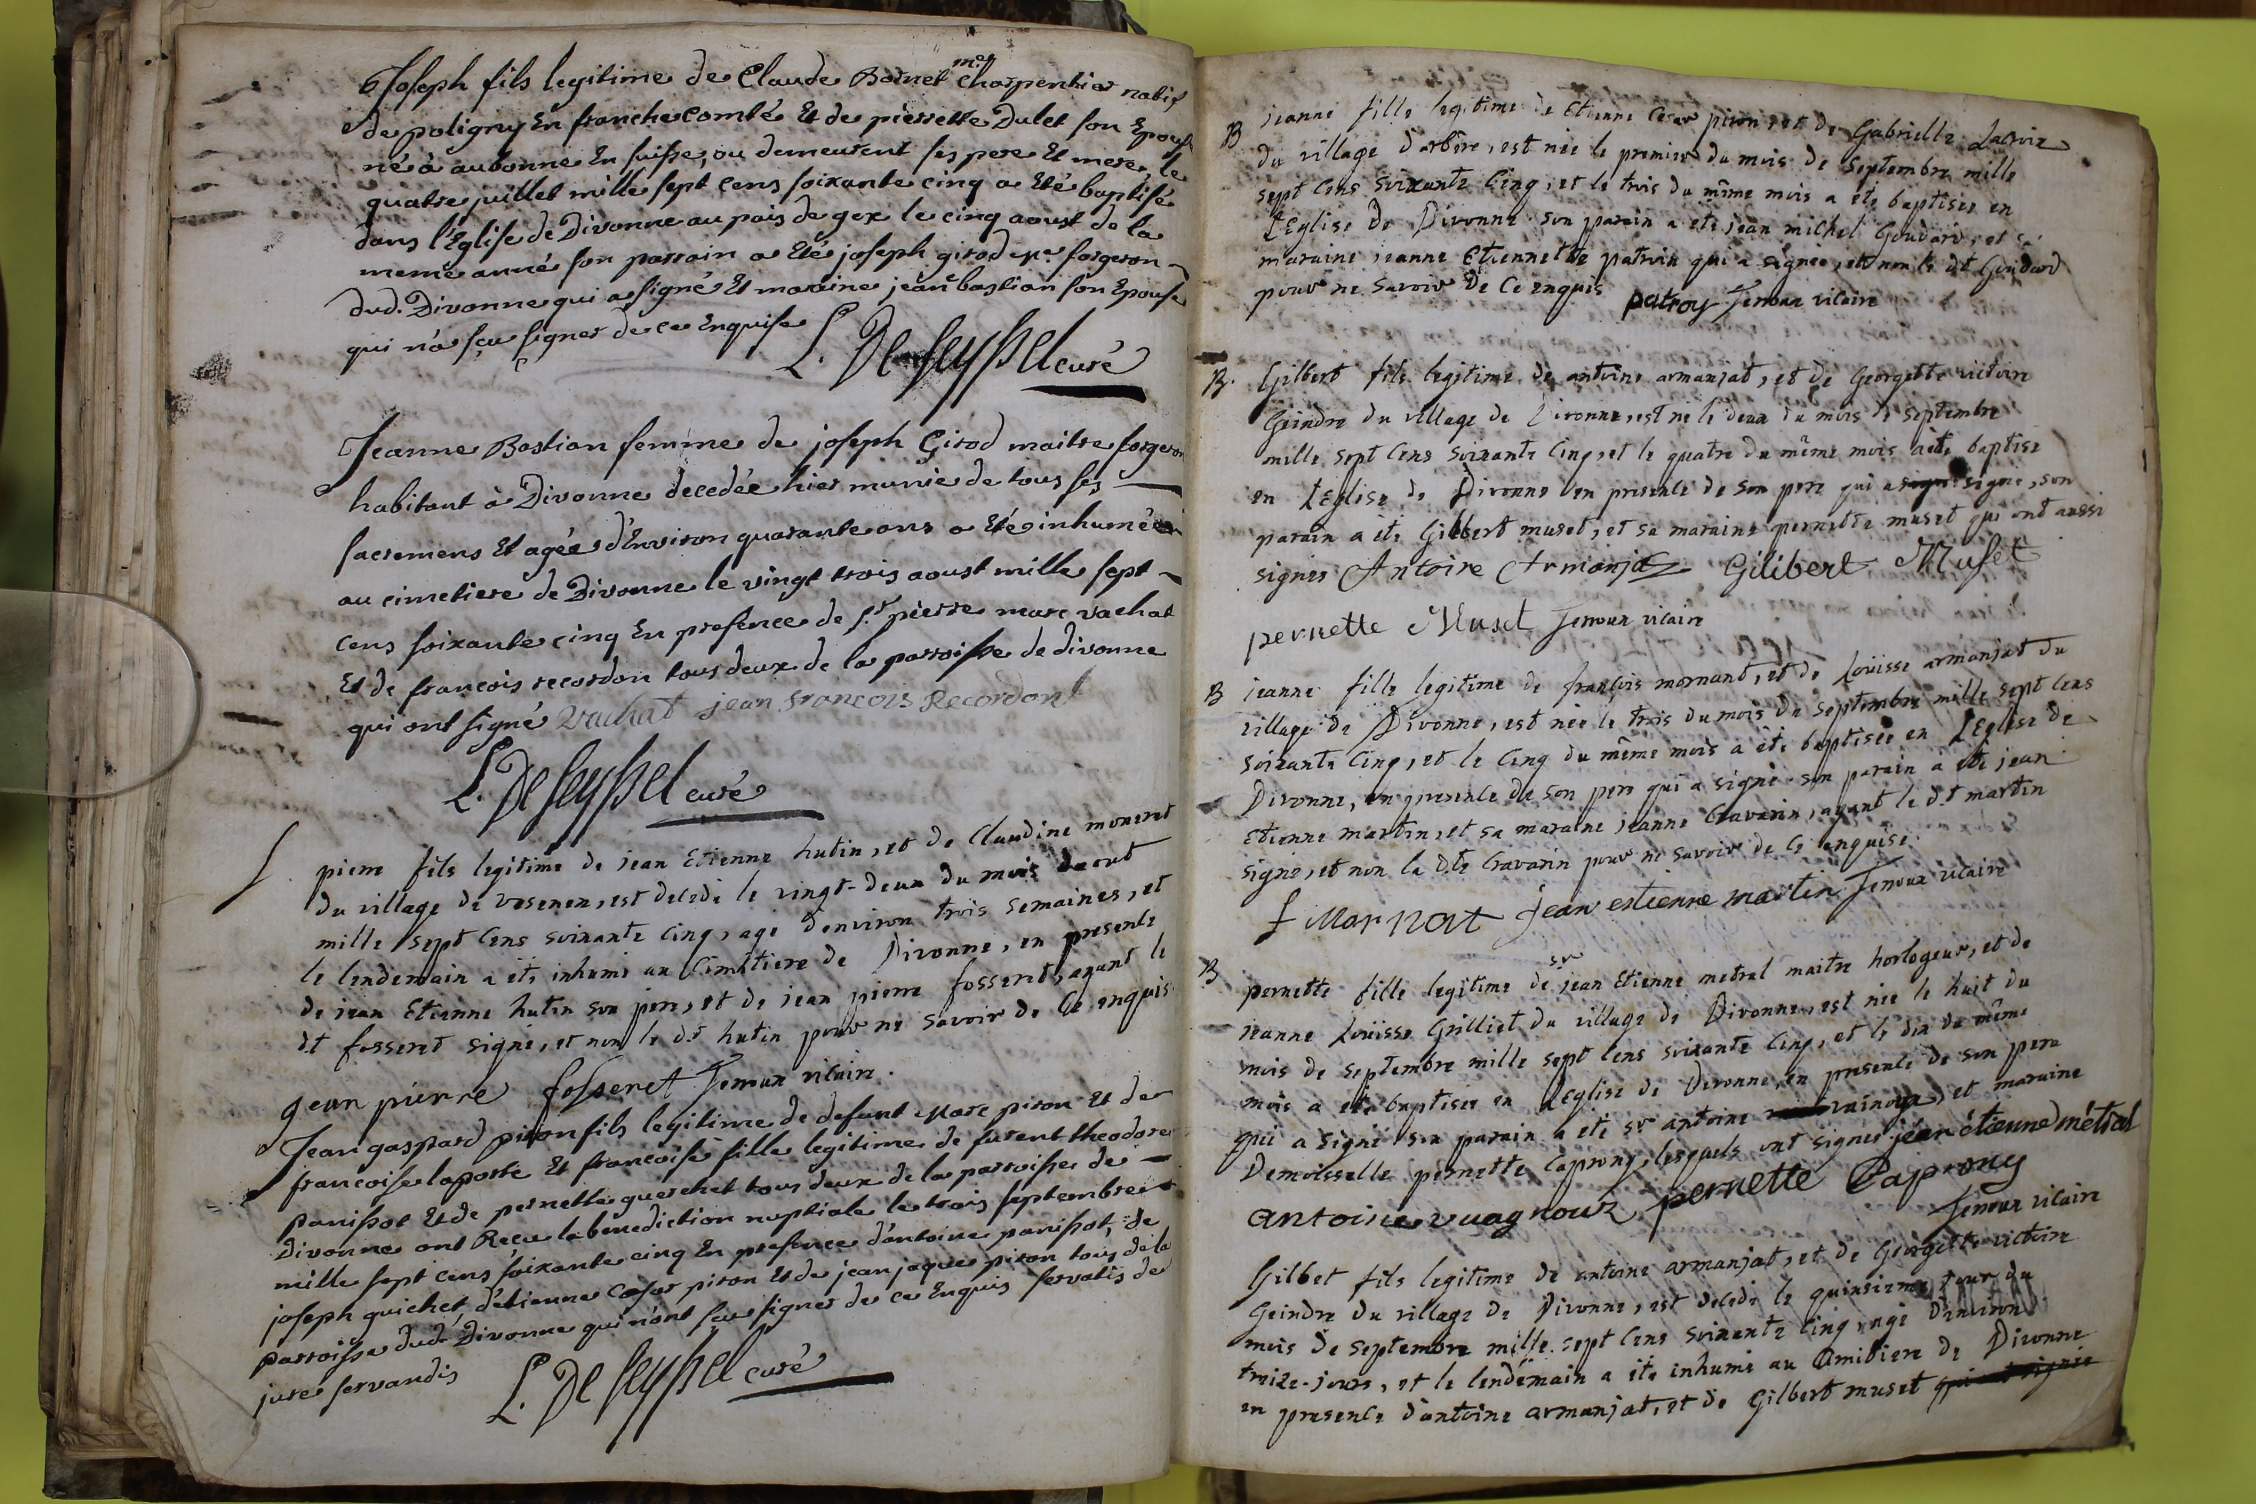 Joseph fils legitime de Claude Boinet me charpentier natif
de poligny En franche comté Et de pierrette Dulet son Epouse
né à aubonne En suisse, ou demeurent ses pere Et mere, le
quatre juillet mille sept cens soixante cinq a Eté baptisé
dans l'Eglise de Divonne au païs de gex le cinq aoust de la
meme année son parrain a Eté joseph girod me forgeron
dud. Divonne qui a signé Et maraine jeane bastian son Epouse
qui n'a sçu signer de ce Enquise
L. De seyssel curé
Jeanne Bastian femme de joseph Girod maitre forgeron
habitant à Divonne decedée hier munie de tous ses
sacremens Et agée d'Environ quarante ans a Eté inhumée
au cimetiere de Divonne le vingt trois aoust mille sept
cens soixante cinq En presence de sr. pierre marc vachat
Et de francois recordon tous deux de la parroisse de divonne
qui ont signé vachat jean francois Recordont
L. De seyssel curé
pierre fils legitime de jean Etienne hutin, et de Claudine moneret
du village de vesenex, est decedé le vingt-deux du mois daout
mille sept cens soixante cinq, agé denviron trois semaines, et
le lendemain a été inhumé au Cimetiere de Divonne, en presence
de jean Etienne hutin son pere, et de jean pierre fosseret, ayant le
dt fosseret signé, et non le dt hutin pour ne savoir de ce enquis
gean pierre fosseret Jenoux vicaire.
Jean gaspard piron fils legitime de defunt Marc piron Et de
francoise laporte Et francoise fille legitime de furent theodore
panissot Et de pernette guerchet tous deux de la parroisse de
Divonne ont Recu la benediction nuptiale le trois septembre
mille sept cens soixante cinq En presence d'antoine panissot, de
joseph guichet, d'etienne Cesar piron Et de jean jaques piron tous de la
parroisse dud. Divonne qui n'ont sçu signer de ce Enquis servatis de
jure servandis
L. De seyssel curé
B jeanne fille legitime de Etienne Cesar piron, et de Gabrielle Lacroix
du village d'arbère, est née le premier du mois de septembre mille
sept cens soixante cinq, et le trois du même mois a été baptisée en
L'Eglise de Divonne son parain a été jean michel Goudard, et sa
maraine jeanne Etiennette patroix qui a signée, et non le dt Goudard
pour ne savoir de ce enquis patroy Jenoux vicaire
B. Gilbert fils legitime de antoine armanjat, et de Georgette victoire
Geindre du village de Divonne, est né le deux du mois de septembre
mille sept cens soixante cinq, et le quatre du même mois a été baptisé
en L'Eglise de Divonne en presence de son pere qui a signé, son
parain a été Gilbert muset, et sa maraine pernette muset qui ont aussi
signés Antoine Armanja Gilibert Muset
pernette Muset Jenoux vicaire
B jeanne fille legitime de françois mornant, et de Loüisse armanjat du
village de Divonne, est née le trois du mois de septembre mille sept cens
soixante cinq, et le cinq du même mois a été baptisée en L'Eglise de
Divonne, en presence de son pere qui a signé son parain a été jean
Etienne martin, et sa maraine jeanne Cravarin, ayant le d.t martin
signé, et non la d.te Cravarin pour ne savoir de ce enquise.
f Marnat jean estienne martin Jenoux vicaire
B pernette fille legitime de sr jean Etienne metral maitre horlogeur, et de
jeanne Loüisse Grilliet du village de Divonne, est née le huit du
mois de septembre mille sept cens soixante cinq, et le dix du même
mois a été baptisée en L'Eglise de Divonne, en presence de son pere
qui a signé son parain a été sr antoine vuinoux, et maraine
Demoisselle pernette Caprony, lesquels ont signés jean étienne métral
antoine vuagnoux pernette Caprony
Jenoux vicaire
Gilbet fils legitime de antoine armanjat, et de Georgette victoire
Geindre du village de Divonne, est decedé le quinsieme jour du
mois de septembre mille sept cens soixante cinq, agé Denviron
treize-jours, et le lendemain a été inhumé au Cimitiere de Divonne
en presence d'antoine armanjat, et de Gilbert muset qui ont signés